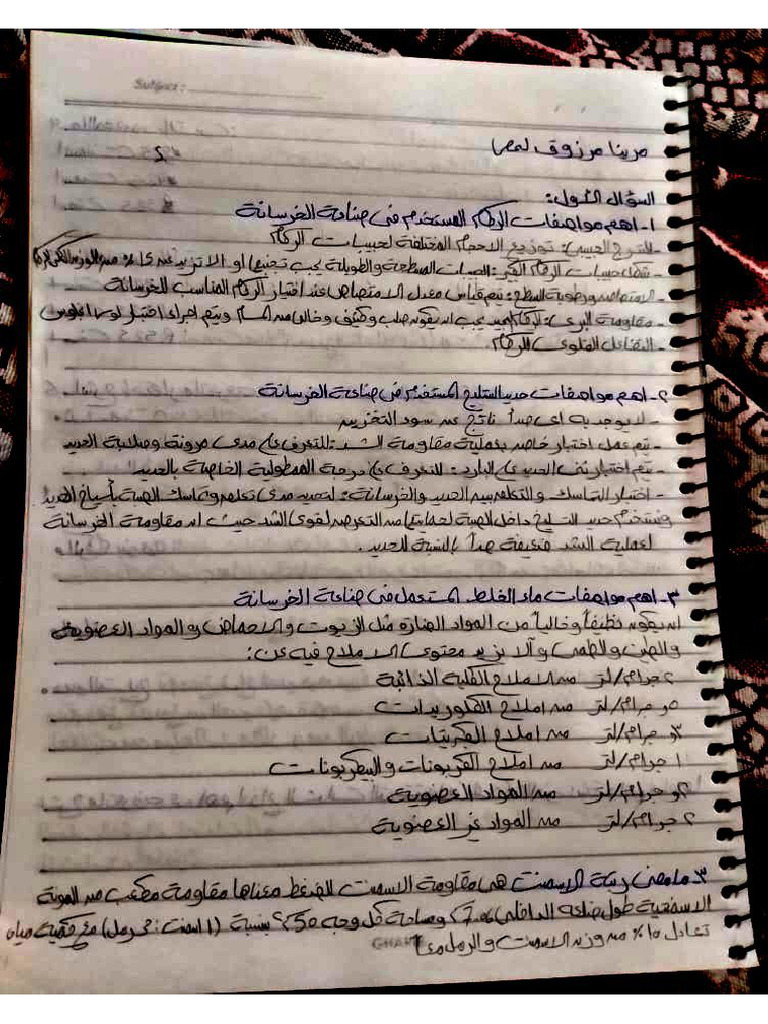 Subject:
مرينا مرزوق لمعى
السؤال الأول:
١- اهم مواصفات الركام المستخدم فى صناعة الخرسانة
- التدرج الحبيبى: توزيع الاحجام المختلفة لحبيبات الركام
- شكل حبيبات الركام الكبير: الحبيبات المسطحة والطويلة يجب تجنبها او الا تزيد عن ١٥٪ من الوزن الكلى للركام
- الامتصاص ورطوبة السطح: يتم قياس معدل الامتصاص عند اختيار الركام المناسب للخرسانة
- مقاومة البرى: الركام الجيد يجب ان يكون صلب وكثيف وخالى من المسام ويتم اجراء اختبار لوس انجلوس
- التفاعل القلوى للركام
٢- اهم مواصفات حديد التسليح المستخدم فى صناعة الخرسانة
- لا يوجد به اى صدأ ناتج عن سوء التخزين
- يتم عمل اختبار خاص بعملية مقاومة الشد: للتعرف على مدى مرونة وصلابة الحديد
- يتم اختبار ثنى الحديد على البارد: للتعرف على درجة الممطولية الخاصة بالحديد
- اختبار التماسك والتلاحم بين الحديد والخرسانة: لتحديد مدى تلاحم وتماسك الصبة بأسياخ الحديد
ويستخدم حديد التسليح داخل الصبة لحمايتها من التعرض لقوى الشد حيث ان مقاومة الخرسانة
لعملية الشد ضعيفة جداً بالنسبة للحديد.
٣- اهم مواصفات ماء الخلط المستعمل فى صناعة الخرسانة
ان يكون نظيفاً وخالياً من المواد الضارة مثل الزيوت والاحماض والمواد العضوية
والطين والطمى وألا يزيد محتوى الاملاح فيه عن:
٢ جرام/لتر من الاملاح الكلية الذائبة
٥و جرام/لتر من املاح الكلوريدات
٣و جرام/لتر من املاح الكبريتات
١ جرام/لتر من املاح الكربونات والبيكربونات
٢و جرام/لتر من المواد العضوية
٢ جرام/لتر من المواد غير العضوية
٣- ما معنى رتبة الاسمنت هى مقاومة الاسمنت للضغط معناها مقاومة مكعب من المونة
الاسمنتية طول ضلعه الداخلى ومساحة كل وجه بنسبة (١ اسمنت : ٣ رمل) مع كمية مياه
تعادل ١٠٪ من وزن الاسمنت والرمل معاً